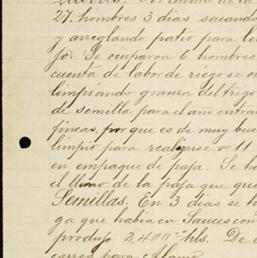 27. hombres 3 dias sacando
y arreglando patio para
Se ocuparon 6 hombres
cuenta de labor de riego se
limpiando granza del trigo
de semilla para el año entra
fincas, por que es de muy bue
limpió para realizarse = 11
en empaque de paja. Se
el lleno de la paja que que
Semillas. En 3 dias se
ga que habia en Sauces con
produjo 2,400 hls. De